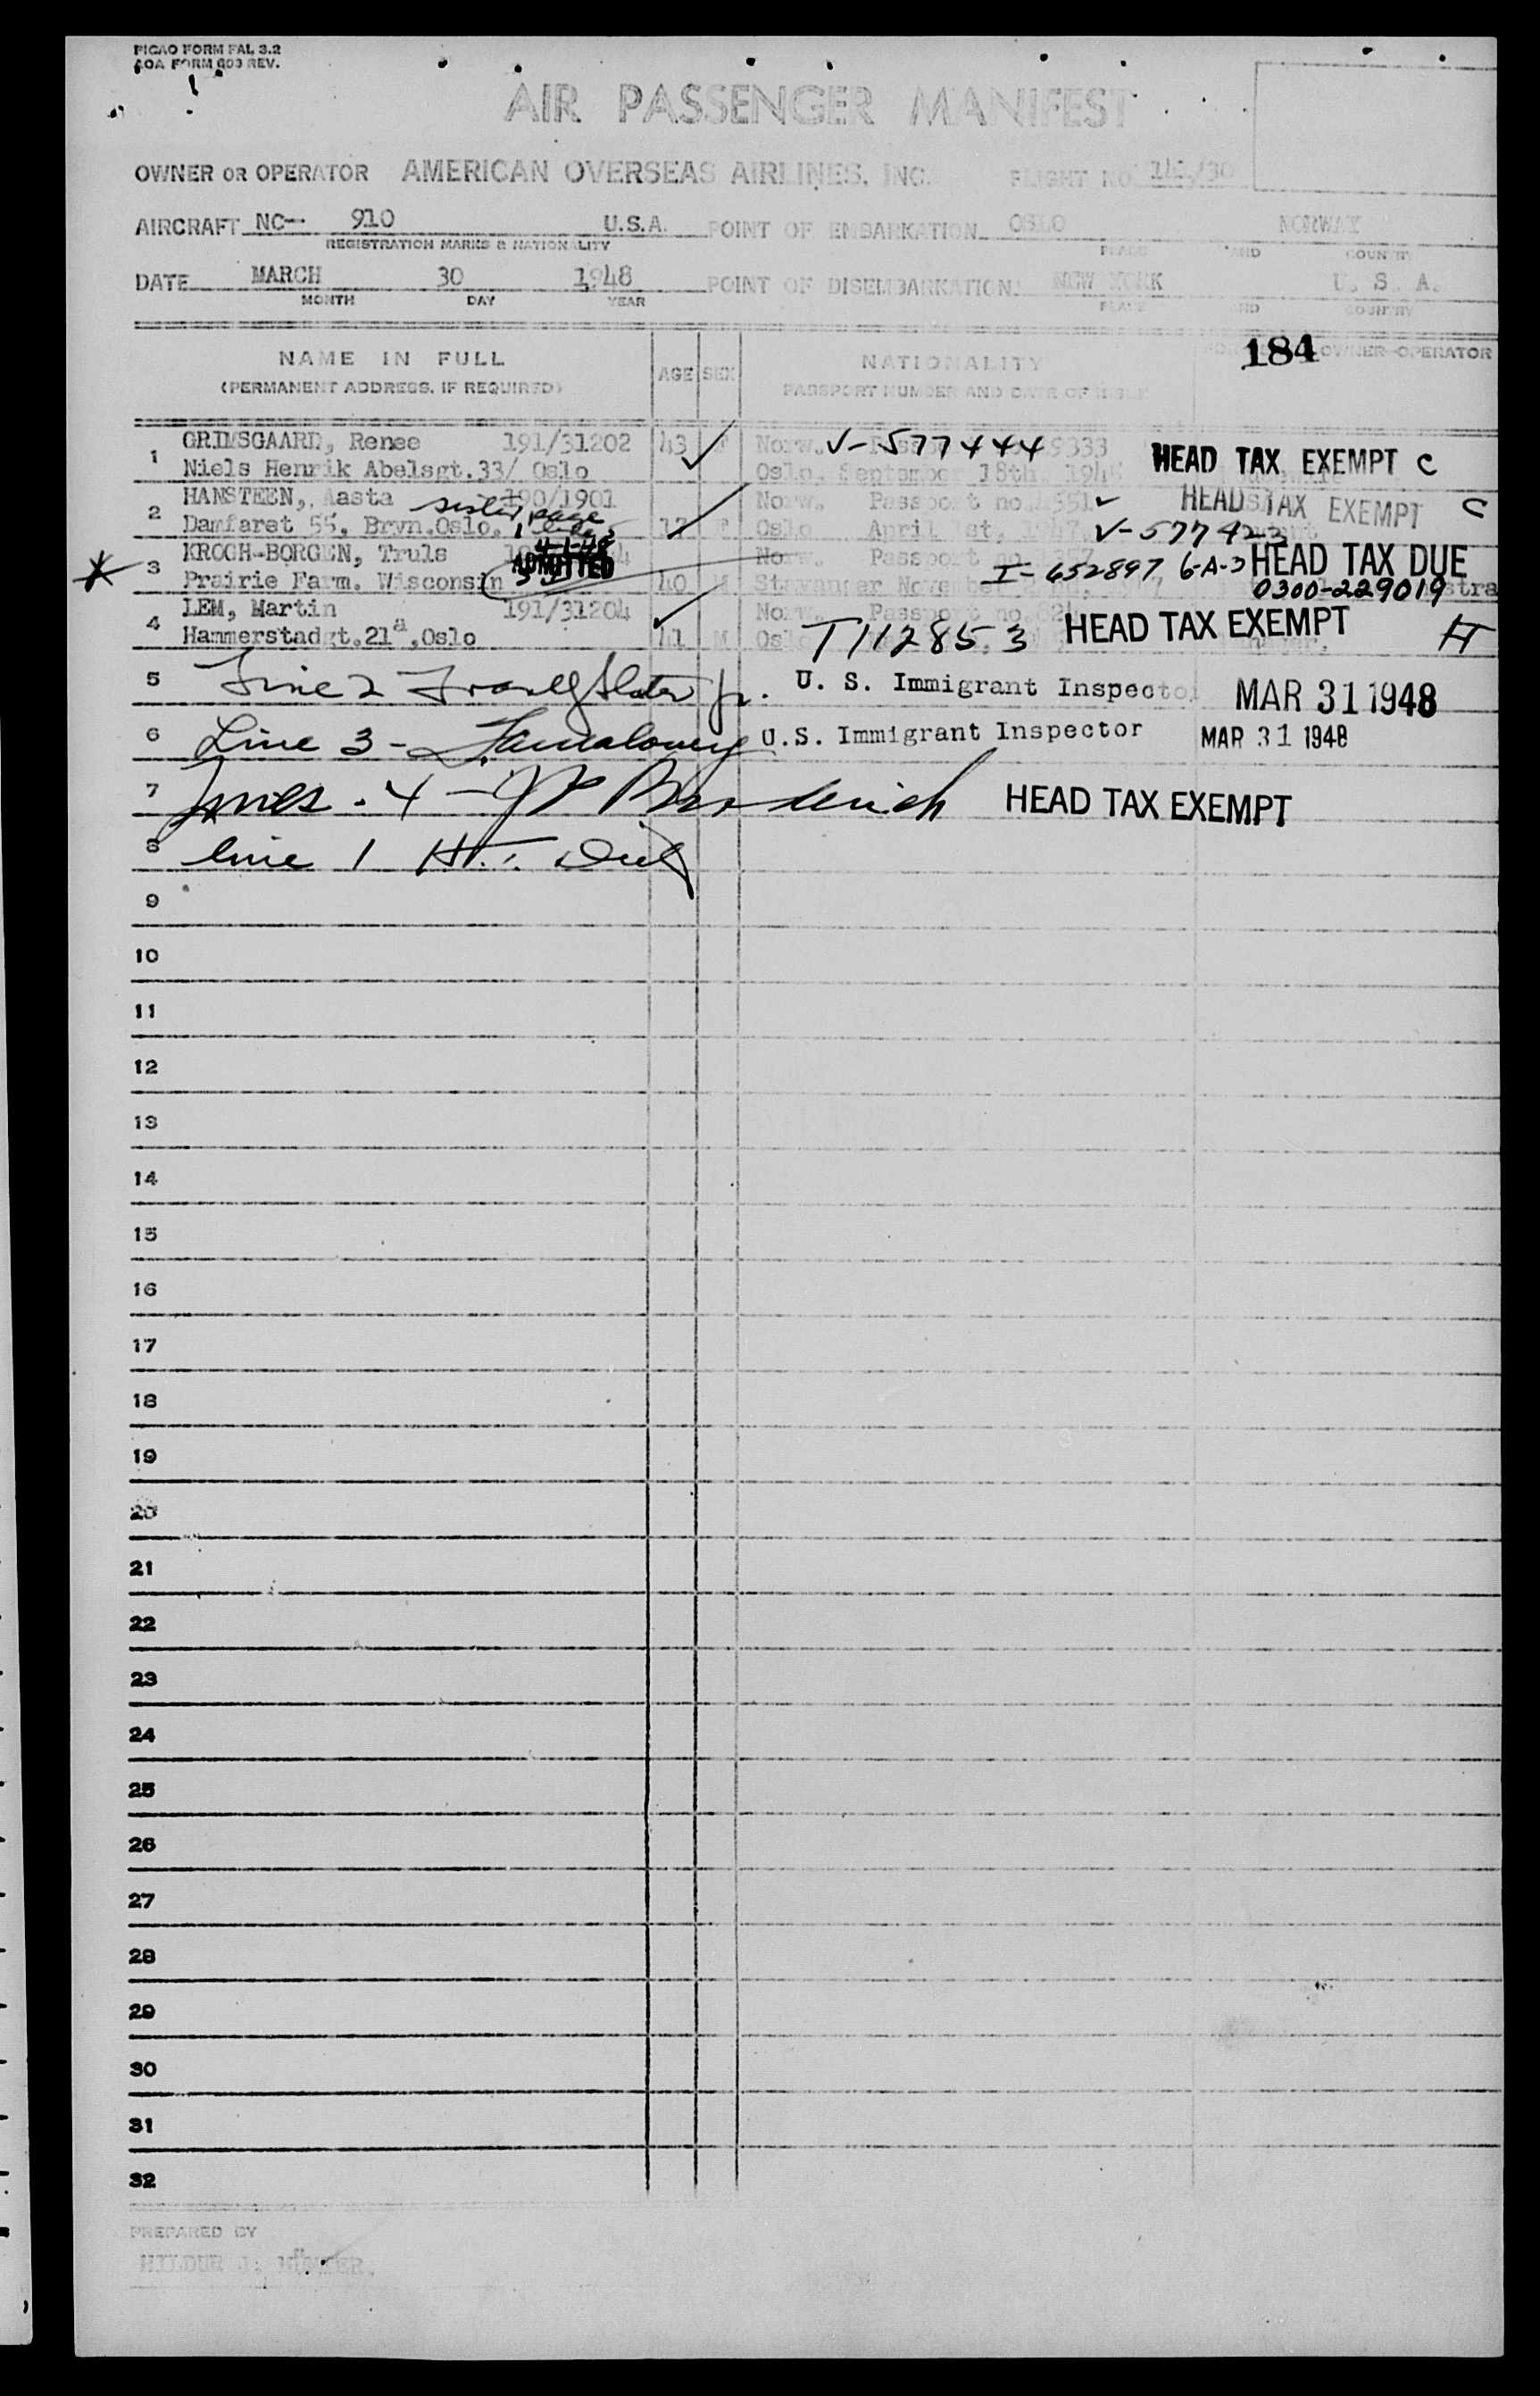 PICAO FORM FAL 3.2
AOA FORM 603 REV.
AIR PASSENGER MANIFEST
OWNER OR OPERATOR AMERICAN OVERSEAS AIRLINES, INC. FLIGHT NO. /30
AIRCRAFT NC-- 910 U.S.A. POINT OF EMBARKATION OSLO NORWAY
REGISTRATION MARKS & NATIONALITY PLACE AND COUNTRY
DATE MARCH 30 1948 POINT OF DISEMBARKATION NEW YORK U. S. A.
MONTH DAY YEAR PLACE AND COUNTRY
NAME IN FULL AGE SEX NATIONALITY 184 OWNER-OPERATOR
(PERMANENT ADDRESS, IF REQUIRED) PASSPORT NUMBER AND DATE OF ISSUE
1 GRIMSGAARD, Renee 191/31202 43 F Norw. V-577444 9333 HEAD TAX EXEMPT C
Niels Henrik Abelsgt.33/ Oslo Oslo, September 18th
2 HANSTEEN, Aasta 190/1901 Norw. Passport no. HEAD TAX EXEMPT C
sister page
Damfaret 55, Bryn.Oslo. 17 F Oslo April st, V-577423
3 KROGH-BORGEN, Truls 4-1-48 Norw. Passport no. 357 I-652897 6-A-3 HEAD TAX DUE
Prairie Farm. Wisconsin ADMITTED 40 M Stavanger November 0300-229019
4 LEM, Martin 191/31204 Norw. Passport no. HEAD TAX EXEMPT H
Hammerstadgt.21a,Oslo 41 M T112853
5 Line 2 Jr. U. S. Immigrant Inspector MAR 31 1948
6 Line 3- U.S. Immigrant Inspector MAR 31 1948
7 Lines - 4 - HEAD TAX EXEMPT
8 line 1
9
10
11
12
13
14
15
16
17
18
19
20
21
22
23
24
25
26
27
28
29
30
31
32
PREPARED BY